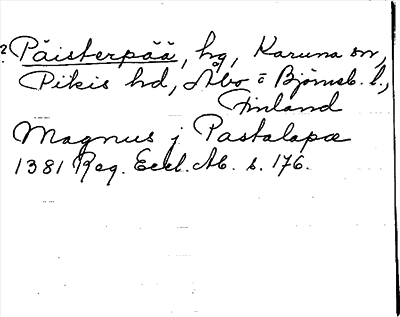 ? Päisterpää, hg, Karuna sn,
Pikis hd, Åbo o Björneb. l.,
Finland
Magnus j Pastalapæ
1381 Reg. Eccl. Ab. s. 176.